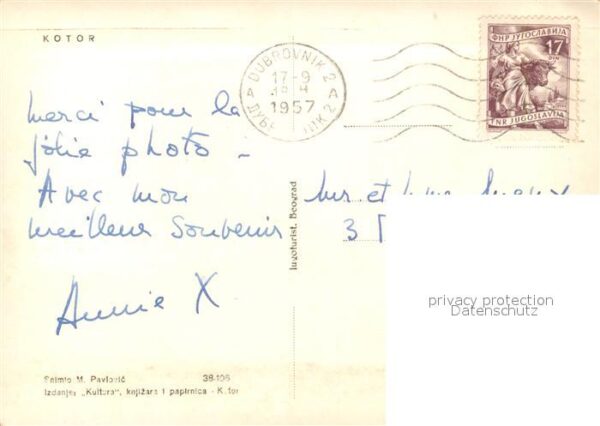 KOTOR
merci pour la
jolie photo -
Avec mon
meilleur souvenir
Annie X
DUBROVNIK 2
17-9
1957
ФНР ЈУГОСЛАВИЈА
17
DIN
FNR JUGOSLAVIJA
Jugoturist, Beograd
Mr et Mme
3
privacy protection
Datenschutz
Snimio M. Pavlović 38-106
Izdanje: „Kultura", knjižara i papirnica - Kotor